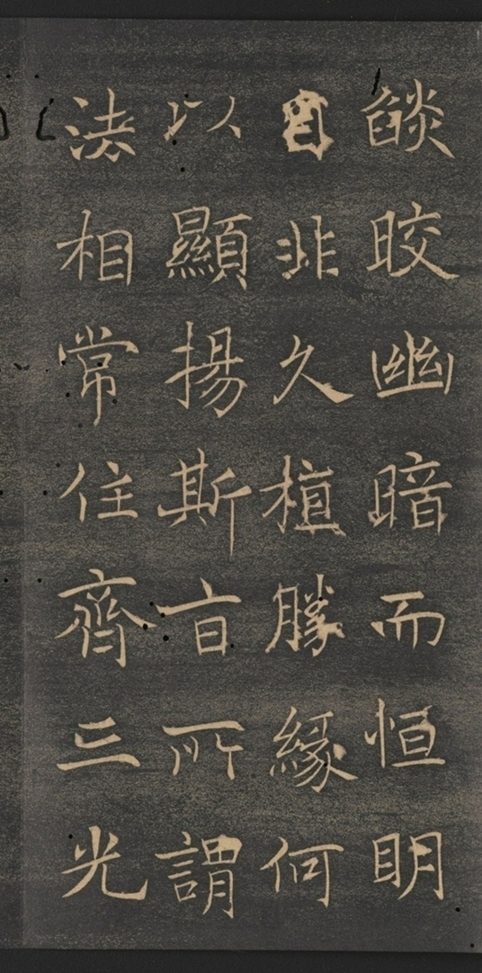 燄晈幽暗而恒眀
自非久植勝緣何
以顯揚斯旨所謂
法相常住齊三光